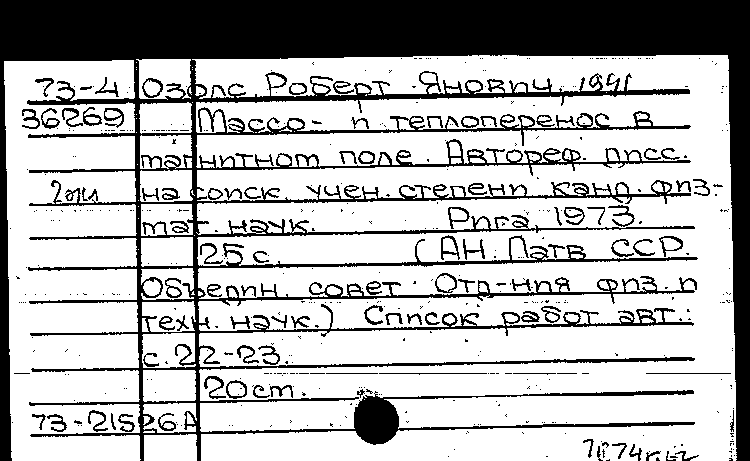 73-4 Озолс, Роберт Янович, 1941
36269 Массо- и теплоперенос в
магнитном поле. Автореф. дисс.
на соиск. учен. степени канд. физ-
мат. наук. Рига, 1973.
25 с. (АН Латв ССР.
Объедин. совет Отд-ния физ. и
техн. наук.) Список работ авт.:
с. 22-23.
20 cm.
73-21526А